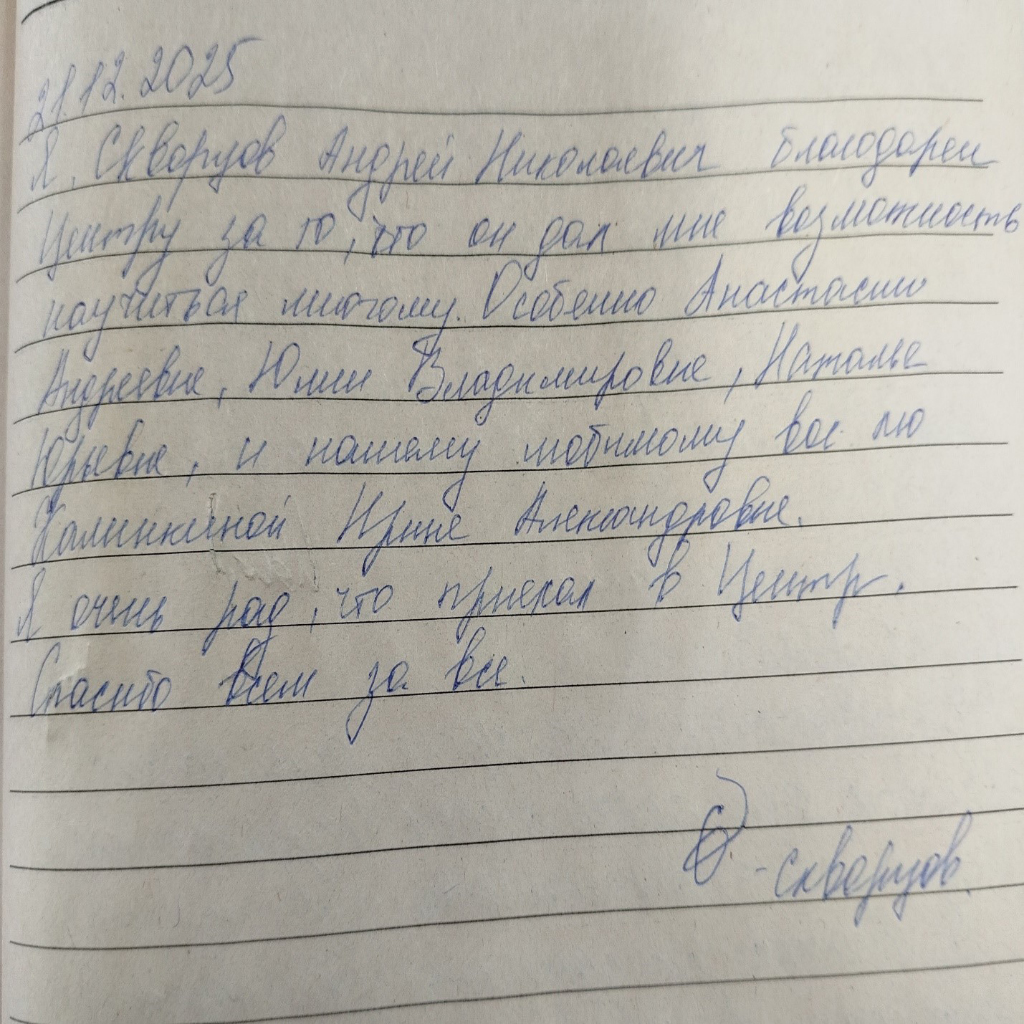 21.12.2025
Я, Скворцов Андрей Николаевич благодарен
Центру за то, что он дал мне возможность
научиться многому. Особенно Анастасии
Андреевне, Юлии Владимировне, Наталье
Юрьевне, и нашему любимому вос лю
Калинкиной Ирине Александровне.
Я очень рад, что приехал в Центр.
Спасибо всем за все.
- Скворцов.